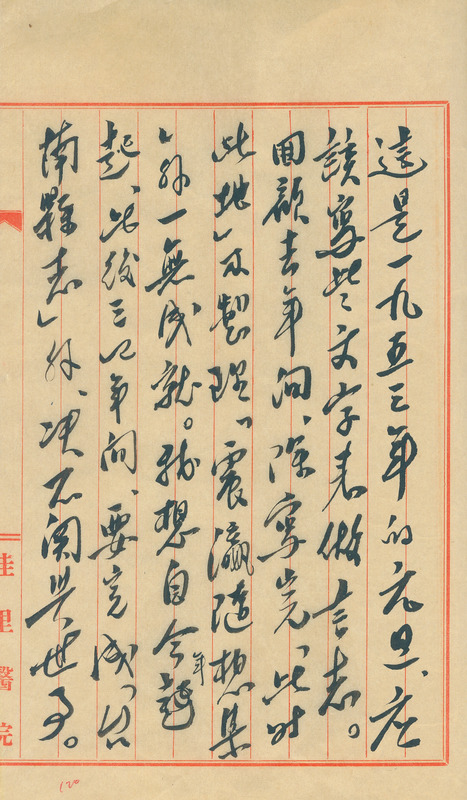 這是一九五三年的元旦、應
該寫些文字來做言志。
回顧去年間、除寫完「此時
此地」及製理「震瀛隨想集
」外一無成就。我想自今年
起、此後三四年間、要完成「台
南縣志」外、決不關與世事。
佳里醫院
120